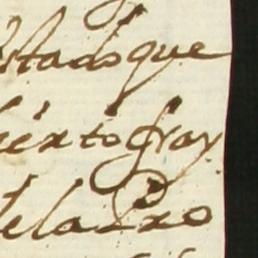 stado que
hierto fray
de la Pro